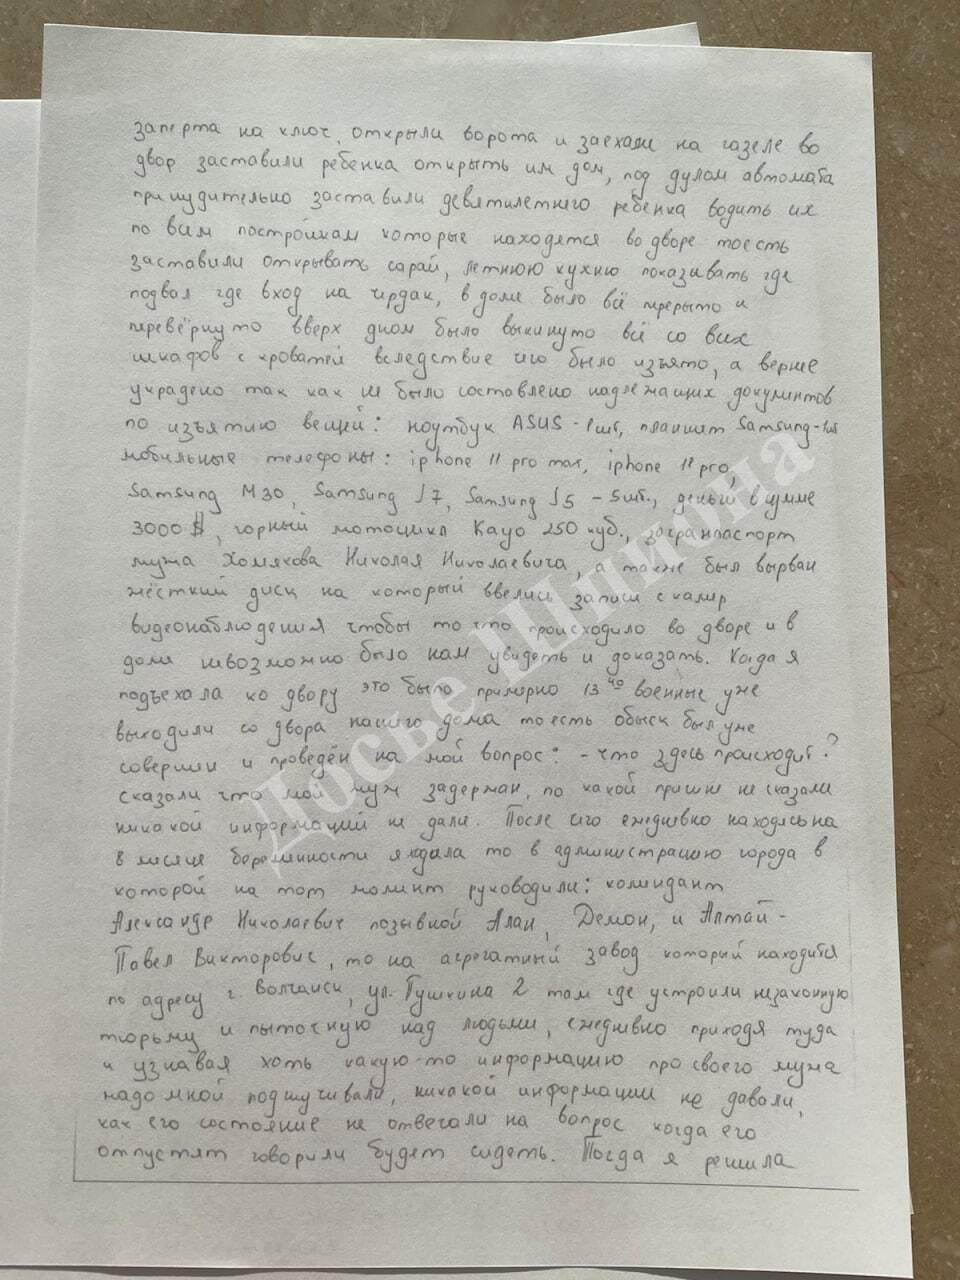 заперта на ключ, открыли ворота и заехали на газеле во
двор заставили ребенка открыть им дом, под дулом автомата
принудительно заставили девятилетнего ребенка водить их
по всем постройкам которые находятся во дворе тоесть
заставили открывать сарай, летнюю кухню показывать где
подвал где вход на чердак, в доме было всё перерыто и
перевёрнуто вверх дном было выкинуто всё со всех
шкафов с кроватей вследствие чего было изъято, а вернее
украдено так как не было составлено надлежащих документов
по изъятию вещей: ноутбук ASUS - 1 шт, планшет Samsung - 1шт
мобильные телефоны: iphone 11 pro max, iphone 11 pro,
Samsung M30, Samsung J7, Samsung J5 - 5шт., деньги в сумме
3000 $, горный мотоцикл Kayo 250 куб., загранпаспорт
мужа Хомякова Николая Николаевича, а также был вырван
жёсткий диск на который ввелись записи с камер
видеонаблюдения чтобы то что происходило во дворе и в
доме невозможно было нам увидеть и доказать. Когда я
подъехала ко двору это было примерно 13 40 военные уже
выходили со двора нашего дома тоесть обыск был уже
совершен и проведён на мой вопрос: - что здесь происходит?
сказали что мой муж задержан, по какой причине не сказали
никакой информации не дали. После чего ежедневно находясь на
8 месяце беременности я ходила то в администрацию города в
которой на тот момент руководили: комендант
Александр Николаевич позывной Алан, Демон, и Алтай -
Павел Викторович, то на агрегатный завод который находится
по адресу г. Волчанск, ул. Пушкина 2 там где устроили незаконную
тюрьму и пыточную над людьми, ежедневно приходя туда
и узнавая хоть какую-то информацию про своего мужа
надомной подшучивали, никакой информации не давали,
как его состояние не отвечали на вопрос когда его
отпустят говорили будет сидеть. Тогда я решила
Досье Шпиона